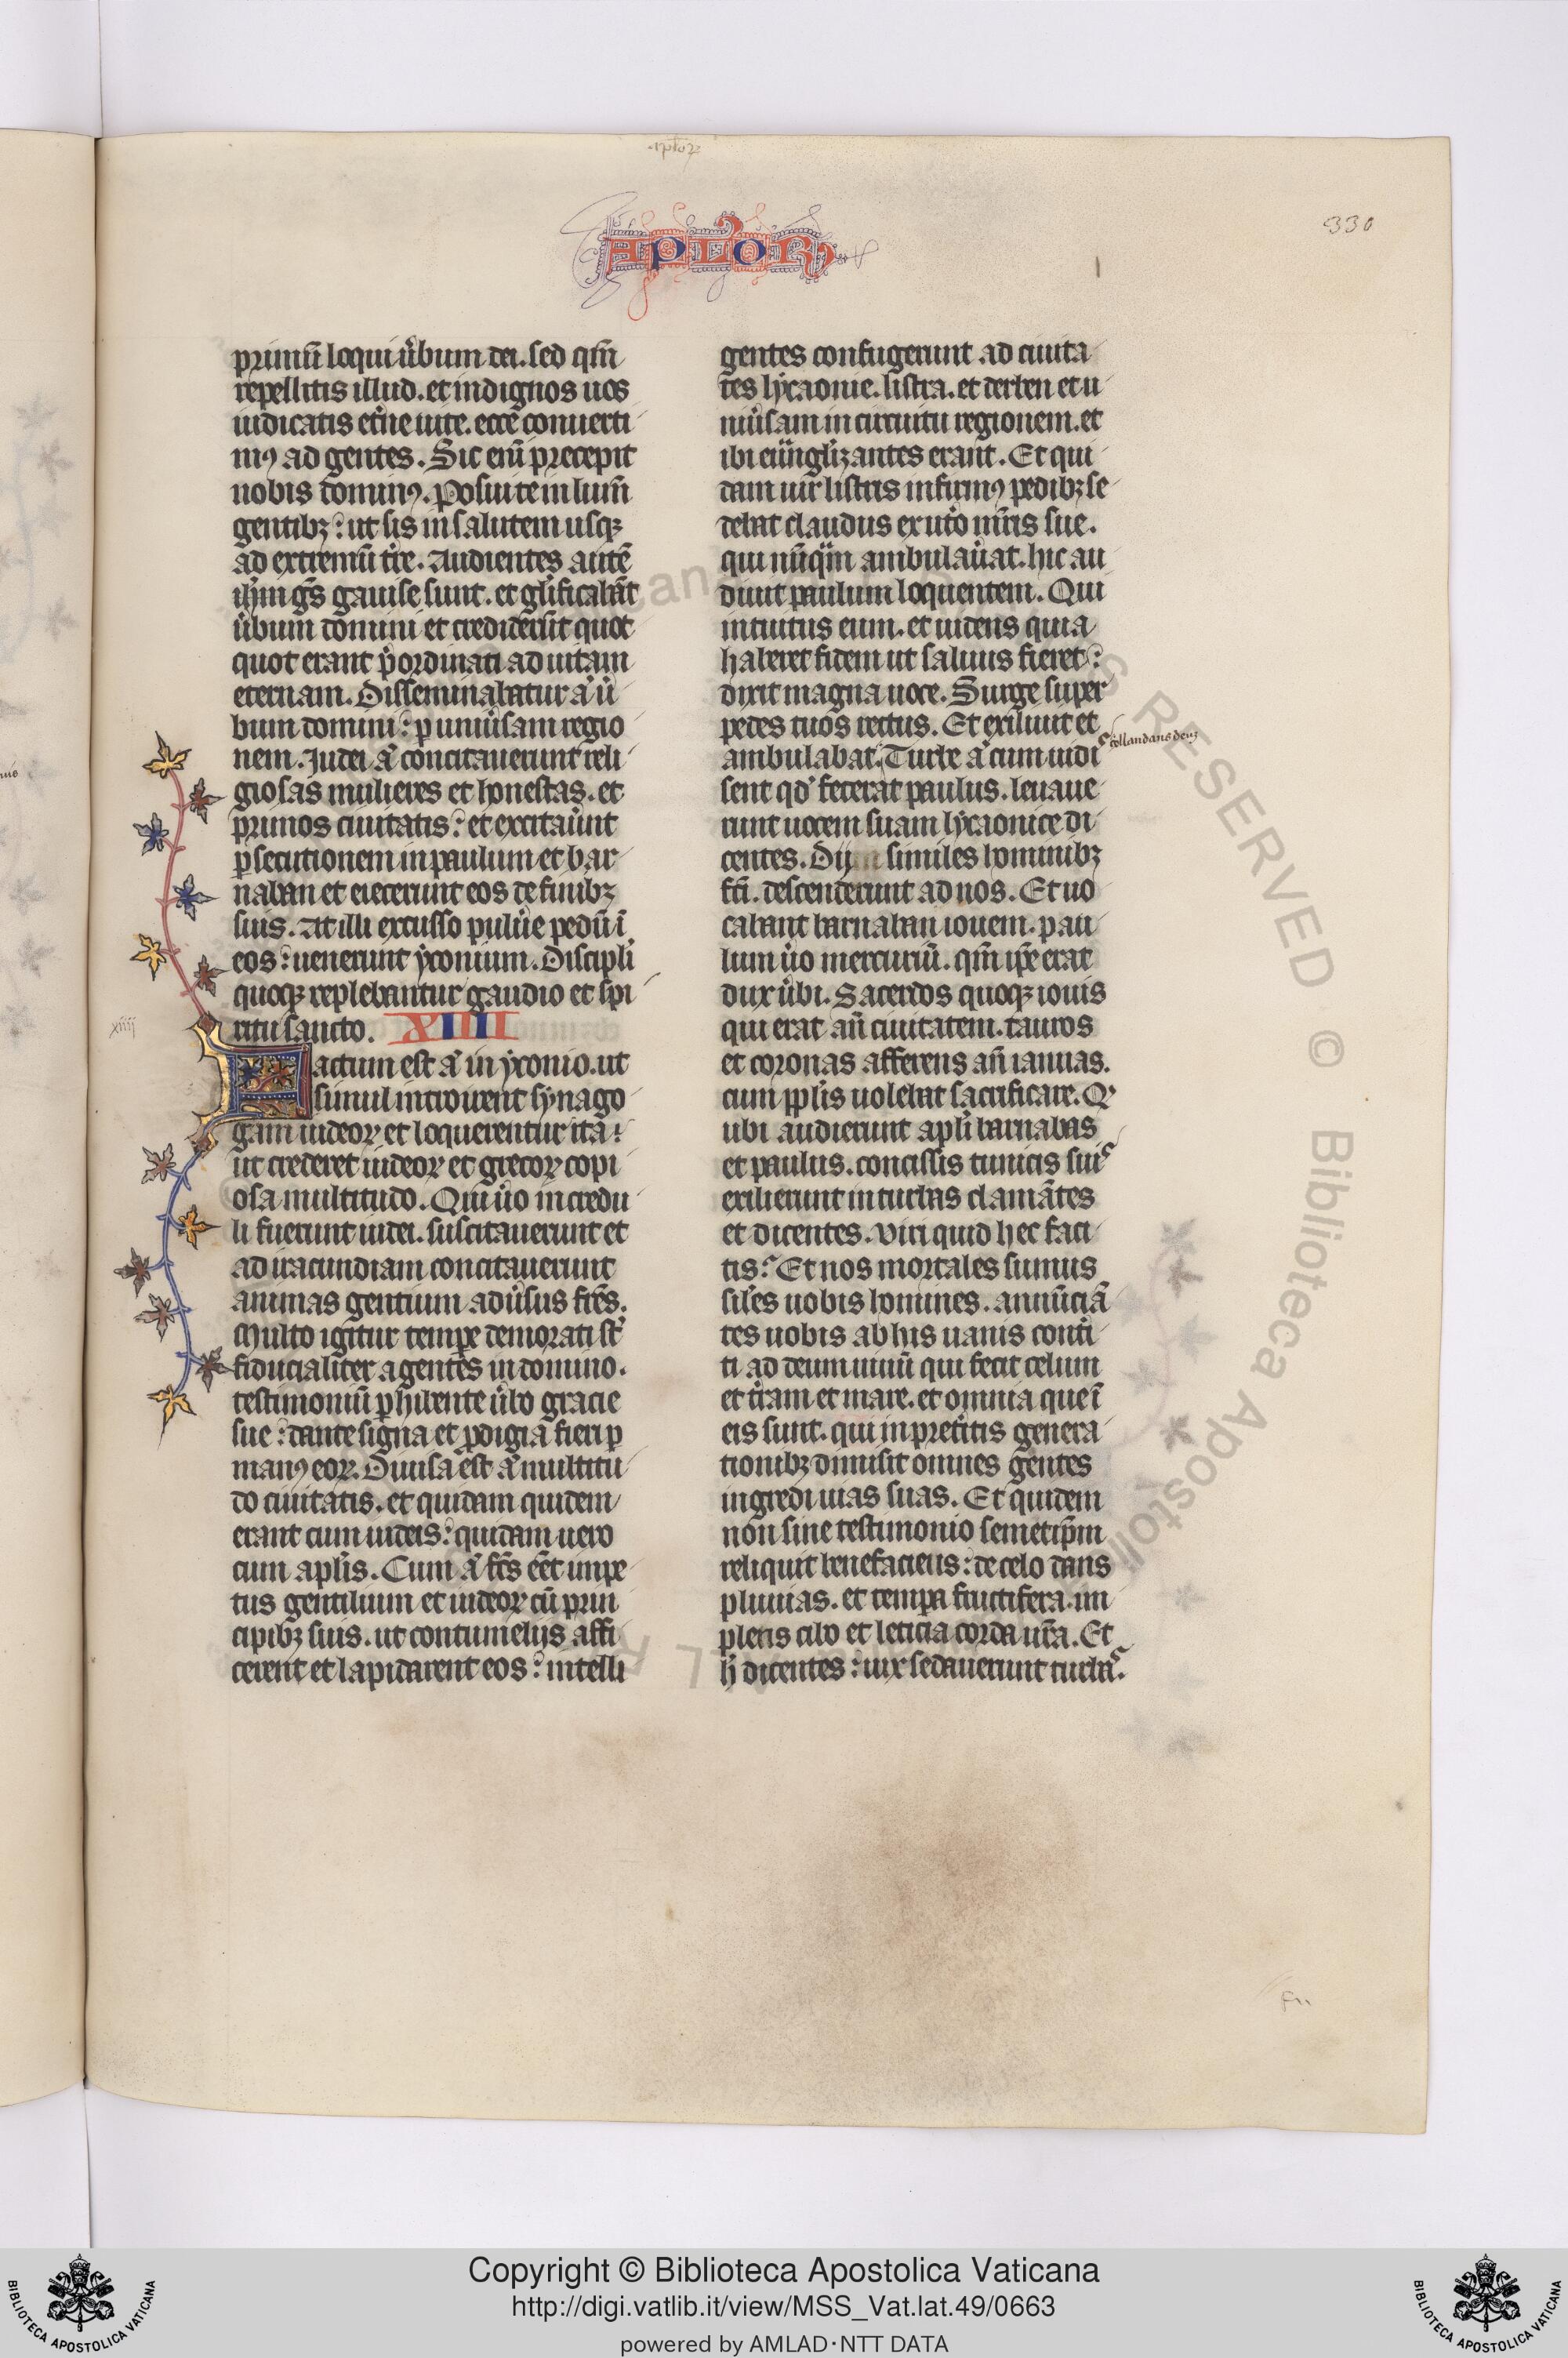 aplor
330
APLOR
primū loqui ūbum dei. sed qm̄
repellitis illud. et indignos uos
iudicatis et̄ne uite. ecce conuerti
mꝰ ad gentes. Sic enī precepit
nobis dominꝰ. Posui te in lum̄
gentibꝫ: ut sis in salutem usqꝫ
ad extremū t̄re. Audientes autē
ih̄m gn̄s gauise sunt. et gl̄ificabāt
ūbum domini et credider̄ut quot
quot erant p̄ordinati ad uitam
eternam. Disseminabatur aͣ ū
bum domini: ꝑ uniūsam regio
nem. Iudei aͣ concitauerunt reli
giosas mulieres et honestas. et
primos ciuitatis: et excitaūnt
ꝑsecutionem in paulum et bar
naban et eiecerunt eos de finibꝫ
suis. At illi excusso puluēe pedū ī
eos: uenerunt yconium. Discipli
quoqꝫ replebantur gaudio et spi
ritu sancto. XIIII
xiiij
Factum est aͣ in yconio. ut
simul introirent synago
gam iudeoꝝ et loquerentur ita:
ut crederet iudeoꝝ et grecoꝝ copi
osa multitudo. Qui ūo incredu
li fuerunt iudei. suscitauerunt et
ad iracundiam concitauerunt
animas gentium adūsus fr̄es.
Multo igitur tempe demorati st̄
fiducialiter agentes in domino.
testimoniū ꝑhibente ūbo gracie
sue: dante signa et ꝓdigia fieri ꝑ
manꝰ eoꝝ. Diuisa est aͣ multitu
do ciuitatis. et quidam quidem
erant cum iudeis: quidam uero
cum aplis. Cum aͣ fc̄s eēt impe
tus gentilium et iudeoꝝ cū prin
cipibꝫ suis. ut contumelijs affi
cerent et lapidarent eos: intelli
gentes confugerunt ad ciuita
tes lycaonie. listra. et derben et u
niūsam in circuitu regionem. et
ibi euāngl̄izantes erant. Et qui
dam uir listris infirmꝰ pedibꝫ se
debat claudus ex ut̄o mr̄is sue.
qui nūqͣm ambulaūat. hic au
diuit paulum loquentem. Qui
intuitus eum. et uidens quia
haberet fidem ut saluus fieret:
dixit magna uoce. Surge super
pedes tuos rectus. Et exiliuit et
ambulabat. Turbe aͣ cum uidi
collaudans deuꝫ
sent qd̓ fecerat paulus. leuaue
runt uocem suam lycaonice di
centes. Dij similes hominibꝫ
fc̄i. descenderunt ad nos. Et uo
cabant barnaban iouem. pau
lum ūo mercuriū. qm̄ ip̄e erat
dux ūbi. Sacerdos quoqꝫ iouis
qui erat an̄ ciuitatem. tauros
et coronas afferens an̄ ianuas.
cum ppl̄is uolebat sacrificare. Qͩ
ubi audierunt apl̄i barnabas
et paulus. concissis tunicis suis
exilierunt in turbas clamātes
et dicentes. Viri quid hec faci
tis? Et nos mortales sumus
sil̄es uobis homines. annūciā
tes uobis ab his uanis conūti
ti ad deum uiuū qui fecit celum
et t̄ram et mare. et omnia que ī
eis sunt. qui in pret̄itis genera
tionibꝫ dimisit omnes gentes
ingredi uias suas. Et quidem
non sine testimonio semetip̄m
reliquit benefaciens: de celo dans
pluuias. et tempa fructifera. im
plens cibo et leticia corda ur̄a. Et
h̄ dicentes: uix sedauerunt turbas.
Copyright © Biblioteca Apostolica Vaticana
http://digi.vatlib.it/view/MSS_Vat.lat.49/0663
powered by AMLAD·NTT DATA
BIBLIOTECA APOSTOLICA VATICANA
BIBLIOTECA APOSTOLICA VATICANA